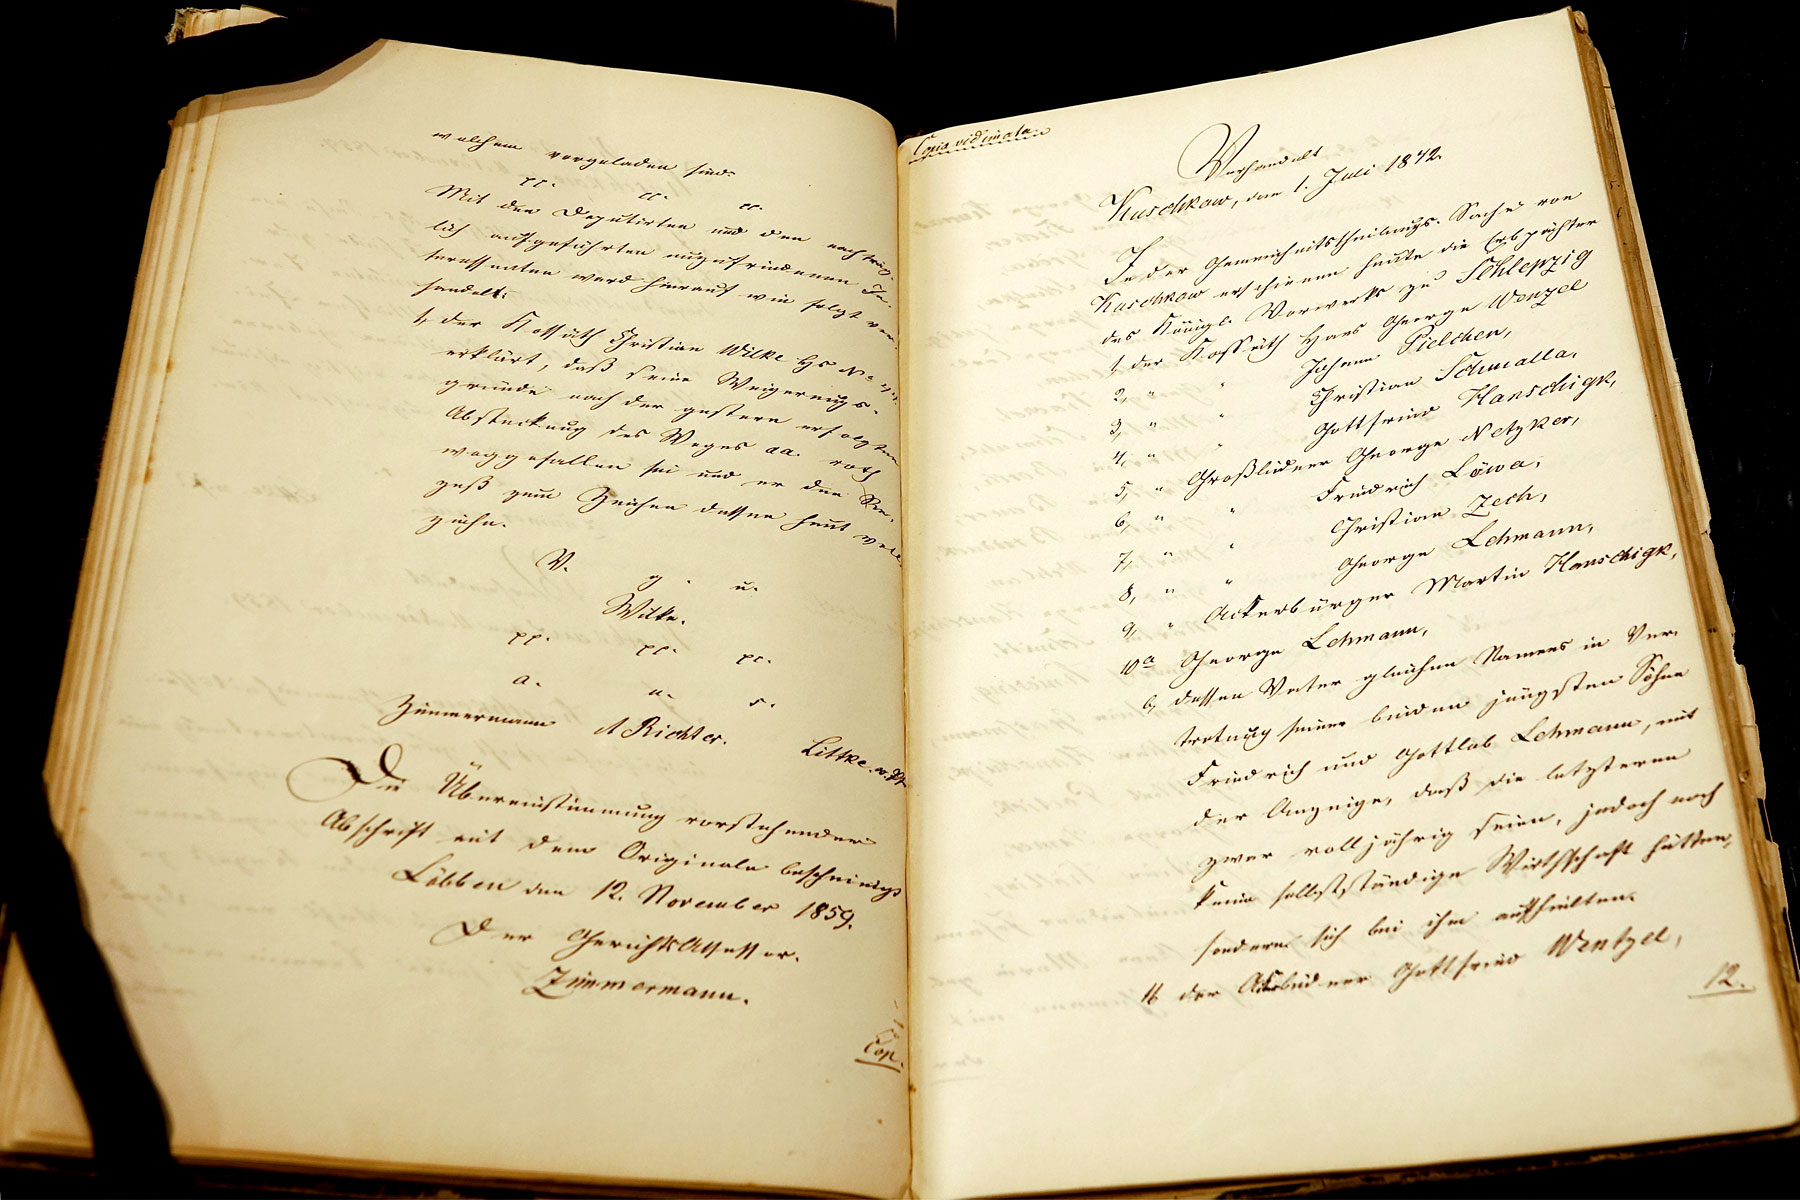 welchem vorgeladen sind.
pp. pp. pp.
Mit den Deputirten und den nachträg-
lich aufgeführten unzufriedenen In-
teressenten ward hierauf wie folgt ver-
handelt:
1, der Kossäth Christian Wilke Hs No
erklärt, daß seine Weigerungs-
gründe nach der gestern erfolgten
Absteckung des Weges aa. roth
weggefallen sei und er den Re-
zeß zum Zeichen dessen heut voll-
ziehe.
V. g. u.
Wilke.
pp. pp. pp.
a. u. s.
Zimmermann A Richter. Littke.
Die Übereinstimmung vorstehender
Abschrift mit dem Originale bescheinigt
Lübben den 12. November 1859.
Der Gerichts Assessor.
Zimmermann.
Cop.
Copia vidimata.
Verhandelt
Kuschkow, den 1. Juli 1842.
In der Gemeinheitstheilungs-Sache von
Kuschkow erschienen heute die Erbpächter
des Königl. Vorwerks zu Schlepzig
1, der Kossäth Hans George Wenzel
2, " " Johann Pielchen,
3, " " Christian Schmalla,
4, " " Gottfried Hanschigk,
5, " Großbüdner George Netzker,
6, " " Friedrich Löwa,
7, " " Christian Zech,
8, " " George Lehmann,
9, " Ackerbürger Martin Hanschigk,
10 a George Lehmann,
b, dessen Vater gleichen Namens in Ver-
tretung seiner beiden jüngsten Söhne
Friedrich und Gottlob Lehmann, mit
der Anzeige, daß die letzteren
zwar volljährig seien, jedoch noch
keine selbstständige Wirthschaft hätten,
sondern sich bei ihm aufhielten.
11 der Gottfried Wentzel,
12.